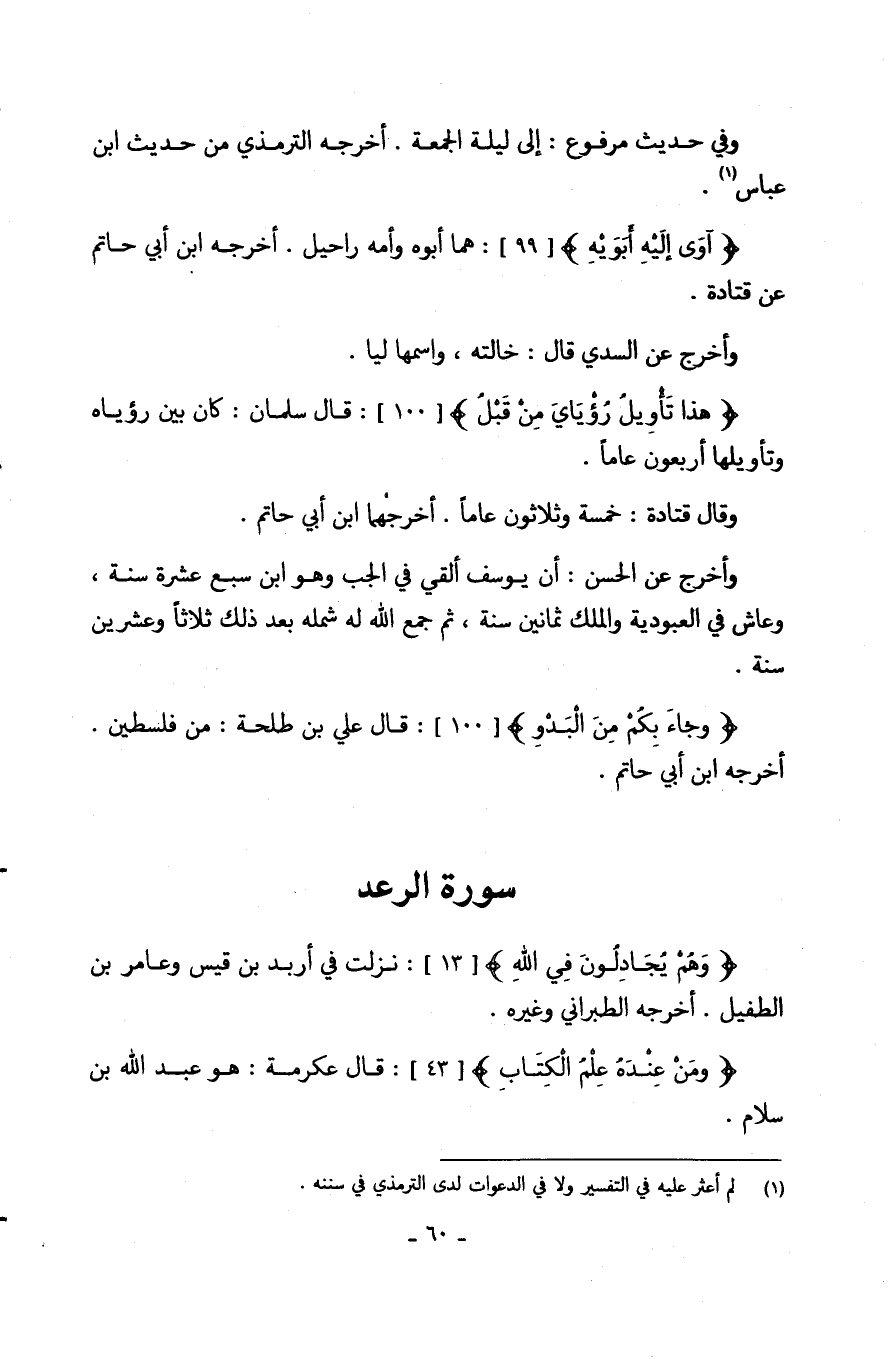 وفي حديث مرفوع : إلى ليلة الجمعة . أخرجه الترمذي من حديث ابن
عباس(١) .
﴿ آوَى إِلَيْهِ أَبَوَيْهِ ﴾ [ ٩٩ ] : هما أبوه وأمه راحيل . أخرجه ابن أبي حاتم
عن قتادة .
وأخرج عن السدي قال : خالته ، واسمها ليا .
﴿ هذا تَأْوِيلُ رُؤْيَايَ مِنْ قَبْلُ ﴾ [ ١٠٠ ] : قال سلمان : كان بين رؤياه
وتأويلها أربعون عاماً .
وقال قتادة : خمسة وثلاثون عاماً . أخرجْهما ابن أبي حاتم .
وأخرج عن الحسن : أن يوسف ألقي في الجب وهو ابن سبع عشرة سنة ،
وعاش في العبودية والملك ثمانين سنة ، ثم جمع الله له شمله بعد ذلك ثلاثاً وعشرين
سنة .
﴿ وجاءَ بِكُمْ مِنَ الْبَدْوِ ﴾ [ ١٠٠ ] : قال علي بن طلحة : من فلسطين .
أخرجه ابن أبي حاتم .
سورة الرعد
﴿ وَهُمْ يُجَادِلُونَ فِي اللهِ ﴾ [ ١٣ ] : نزلت في أربد بن قيس وعامر بن
الطفيل . أخرجه الطبراني وغيره .
﴿ ومَنْ عِنْدَهُ عِلْمُ الْكِتَابِ ﴾ [ ٤٣ ] : قال عكرمة : هو عبد الله بن
سلام .
(١) لم أعثر عليه في التفسير ولا في الدعوات لدى الترمذي في سننه .
ـ ٦٠ ـ